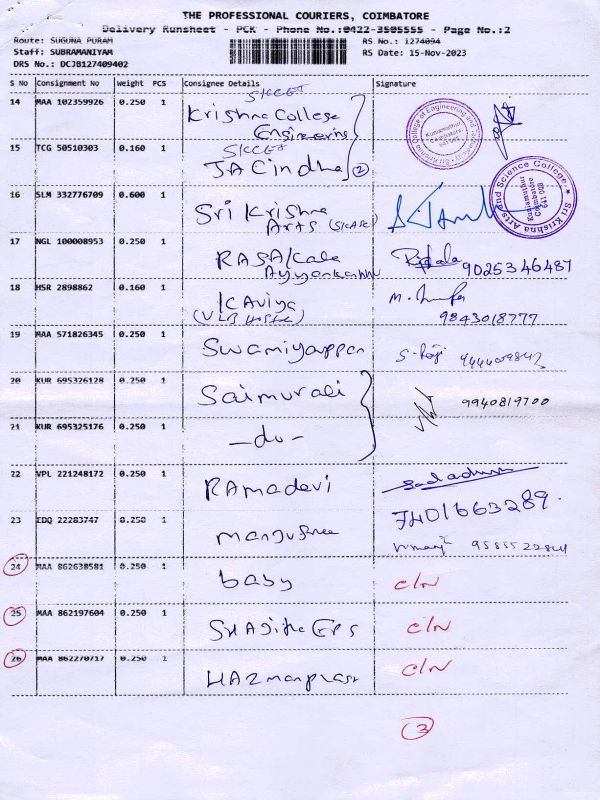 THE PROFESSIONAL COURIERS, COIMBATORE
Delivery Runsheet - PCK - Phone No.:0422-3505555 - Page No.:2
Route: SUGUNA PURAM
RS No.: 1274094
Staff: SUBRAMANIYAM
RS Date: 15-Nov-2023
DRS No.: DCJB127409402
S No Consignment No Weight PCS Consignee Details Signature
SKCET
14 MAA 102359926 0.250 1 Krishna College
Engineering
Sri Krishna College of Engineering and Technology
Kuniamuthur
Coimbatore
641 008
SKCET
15 TCG 50510303 0.160 1 JACindha (2)
Sri Krishna Arts and Science College
Kuniamuthur
Coimbatore
641 008
16 SLM 332776709 0.600 1 Sri Krishna
Arts (SKASC)
17 NGL 100008953 0.250 1 RASAKala
9025346487
18 HSR 2898862 0.160 1 KAviya
(VLB Hostel)
9843018777
19 MAA 571826345 0.250 1 Swamiyappan S. Roji
20 KUR 695326128 0.250 1 Saimurali 9940819700
21 KUR 695325176 0.250 1 -do-
22 VPL 221248172 0.250 1 RAmadevi
7401663289.
23 EDQ 22283747 0.250 1 manjushree
24 MAA 862638581 0.250 1 baby C/N
25 MAA 862197604 0.250 1 C/N
26 MAA 862270717 0.250 1 C/N
3